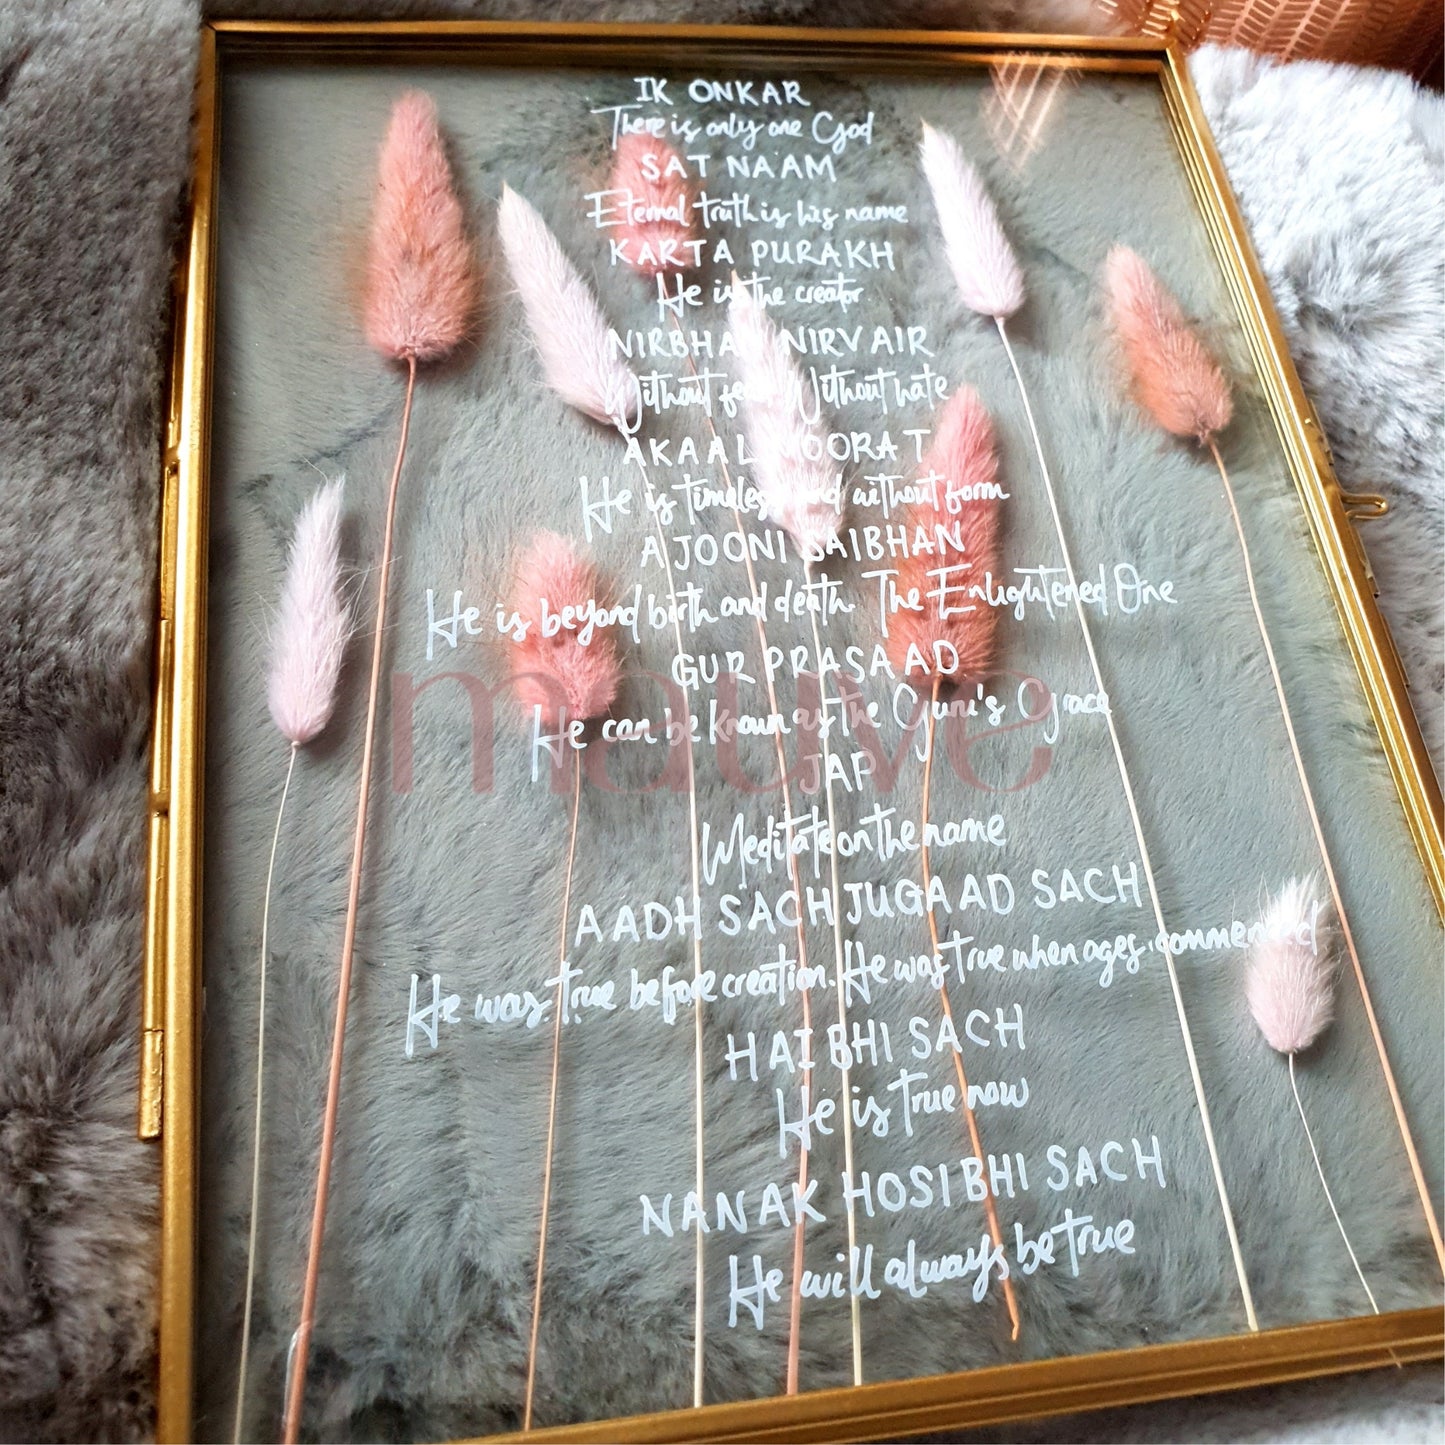 IK ONKAR
There is only one God
SAT NAAM
Eternal truth is his name
KARTA PURAKH
He is the creator
NIRBHAU NIRVAIR
Without fear Without hate
AKAAL MOORAT
He is timeless and without form
AJOONI SAIBHAN
He is beyond birth and death. The Enlightened One
GUR PRASAAD
He can be known as the Guru's Grace
mauve
JAP
Meditate on the name
AADH SACH JUGAAD SACH
He was true before creation. He was true when ages commenced
HAI BHI SACH
He is true now
NANAK HOSI BHI SACH
He will always be true